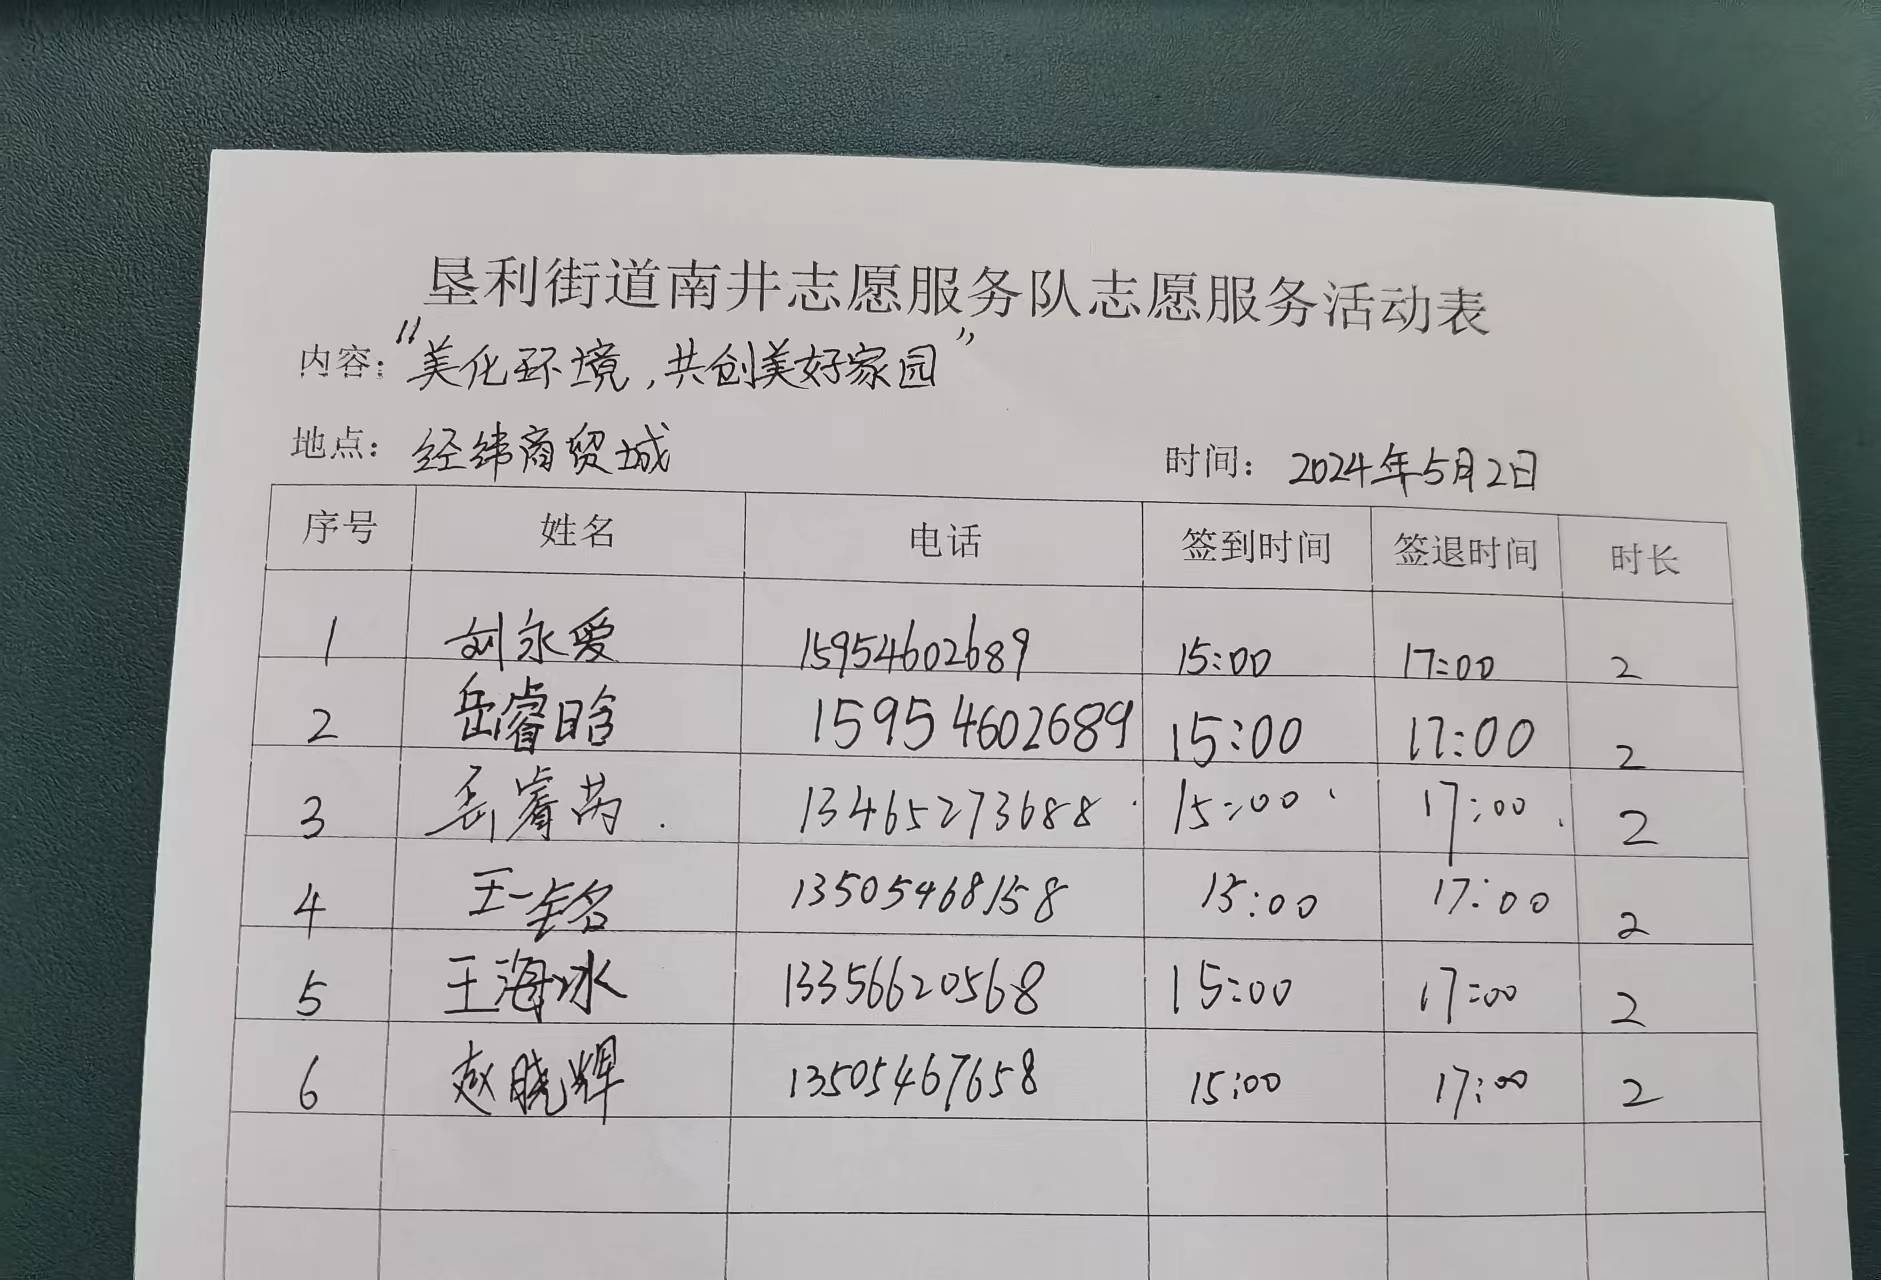 垦利街道南井志愿服务队志愿服务活动表
内容："美化环境，共创美好家园"
地点：经纬商贸城 时间：2024年5月2日
序号 姓名 电话 签到时间 签退时间 时长
1 刘永爱 15954602689 15:00 17:00 2
2 岳睿晗 15954602689 15:00 17:00 2
3 岳睿芮 13465273688 15:00 17:00 2
4 王一铭 13505468158 15:00 17:00 2
5 王海冰 13356620568 15:00 17:00 2
6 赵晓辉 13505467658 15:00 17:00 2